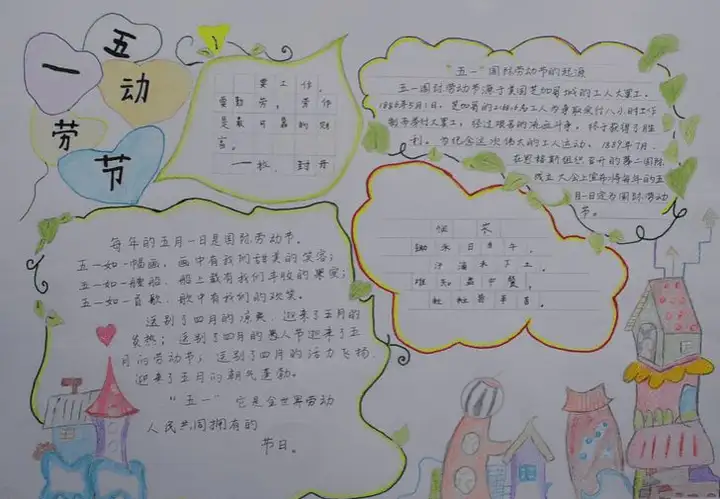 五
一
动
劳
节
要工作，
要勤劳，劳作
是最可靠的财
富。
一拉．封丹
“五一”国际劳动节的起源
五一国际劳动节源于美国芝加哥城的工人大罢工。
1886年5月1日，芝加哥的工人为争取实行八小时工作
制而举行大罢工，经过艰苦的流血斗争，终于获得了胜
利。为纪念这次伟大的工人运动，1889年7月，
在恩格斯组织召开的第二国际
成立大会上宣布将每年的五
月一日定为国际劳动
节。
悯 农
锄禾日当午，
汗滴禾下土。
谁知盘中餐，
粒粒皆辛苦。
每年的五月一日是国际劳动节。
五一如一幅画，画中有我们甜美的笑容；
五一如一艘船，船上载有我们丰收的果实；
五一如一首歌，歌中有我们的欢笑。
送别了四月的凉爽，迎来了五月的
炎热；送别了四月的愚人节迎来了五
月的劳动节；送别了四月的活力飞扬，
迎来了五月的朝气蓬勃。
“五一”它是全世界劳动
人民共同拥有的
节日。